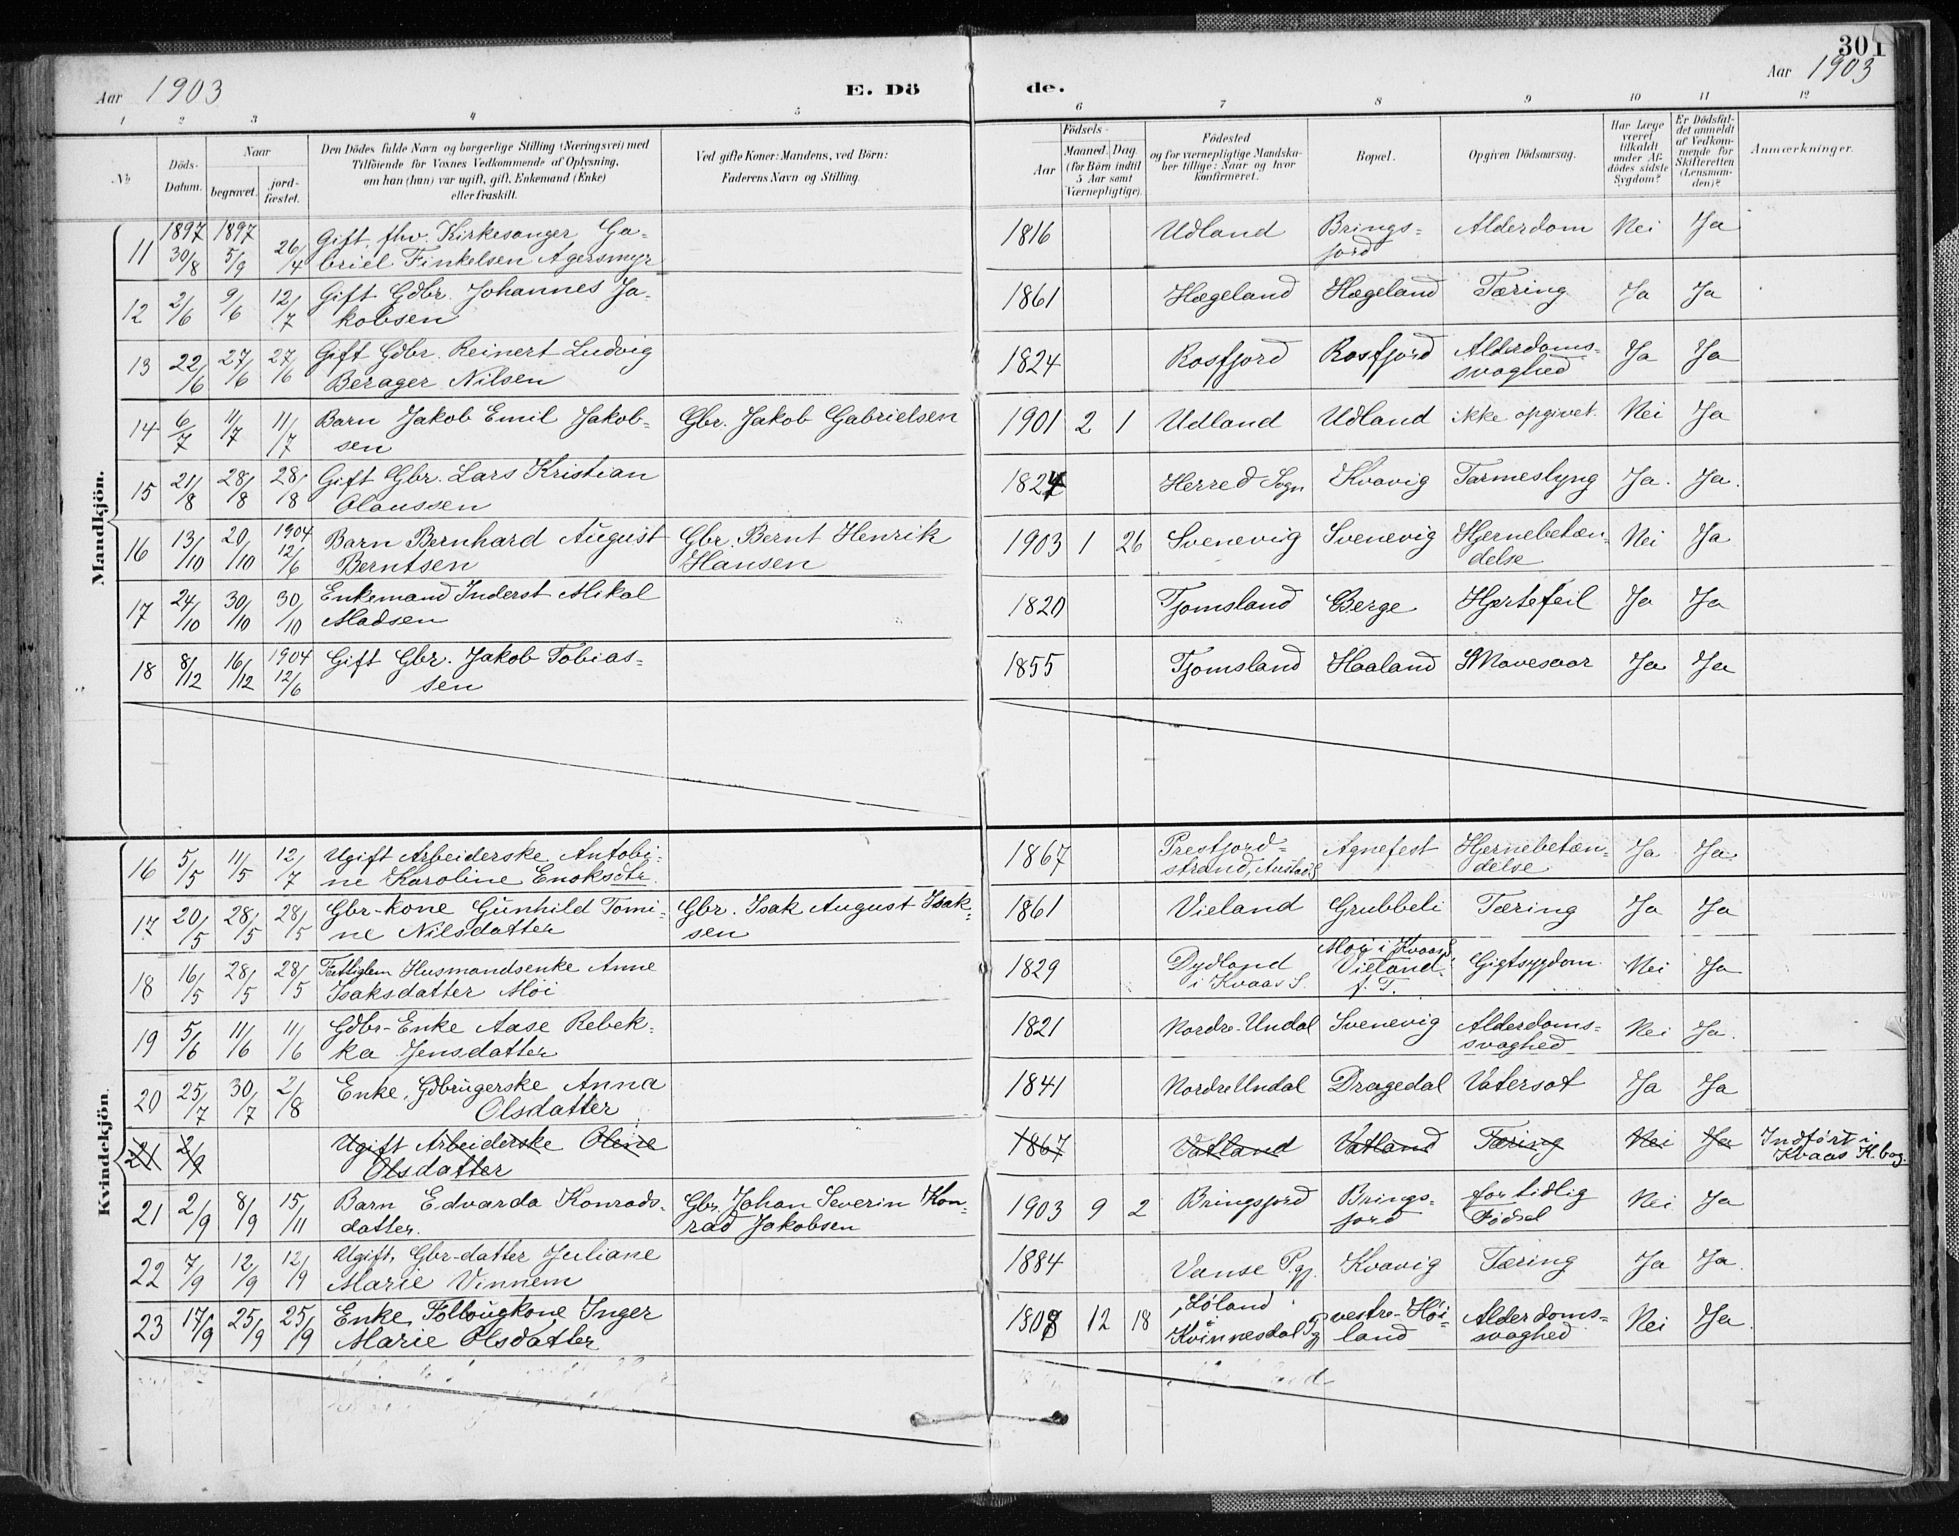 301
Aar 1903
E. Dö
de.
Aar 1903
1 2 3 4 5 6 7 8 9 10 11 12
No
Döds-Datum.
Naar
begravet.
jord-fæstet.
Den Dödes fulde Navn og borgerlige Stilling (Næringsvei) med
Tilföiende for Voxnes Vedkommende af Oplysning,
om han (hun) var ugift, gift, Enkemand (Enke)
eller fraskilt.
Ved gifte Koner: Mandens, ved Börn:
Faderens Navn og Stilling.
Födsels-
Aar
Maaned. Dag
(for Börn indtil
5 Aar samt
Værnepligtige).
Födested
og for værnepligtige Mandska-
ber tillige: Naar og hvor
konfirmeret.
Bopæl.
Opgiven Dödsaarsag.
Har Læge
været
tilkaldt
under Af-
dödes sidste
Sygdom?
Er Dödsfal-
det anmeldt
af Vedkom-
mende for
Skifteretten
(Lensman-
den)?
Anmærkninger.
Mandkjön.
11 1897 30/8 1897 5/9 26/4 Gift, fhv. Kirkesanger Ga-
briel Finkelsen Agersmyr 1816 Udland Brings-
fjord Alderdom Nei Ja
12 2/6 9/6 12/7 Gift Gdbr. Johannes Ja-
kobsen 1861 Hægeland Hægeland Tæring Ja Ja
13 22/6 27/6 27/6 Gift Gdbr. Reinert Ludvig
Berager Nilsen 1824 Rosfjord Rosfjord Alderdoms-
svaghed Ja Ja
14 6/7 11/7 11/7 Barn Jakob Emil Jakob-
sen Gbr. Jakob Gabrielsen 1901 2 1 Udland Udland ikke opgivet. Nei Ja
15 21/8 28/8 28/8 Gift Gbr. Lars Kristian
Olaussen 1824 Herred Sogn Kvavig Tarmeslyng Ja. Ja.
16 13/10 20/10 1904 12/6 Barn Bernhard August
Berntsen Gbr. Bernt Henrik
Hansen 1903 1 26 Svenevig Svenevig Hjernebetæn-
delse Nei Ja
17 24/10 30/10 30/10 Enkemand Inderst Mikal
Madsen 1820 Tjomsland Berge Hjertefeil Ja Ja
18 8/12 16/12 1904 12/6 Gift Gbr. Jakob Tobias-
sen 1855 Tjomsland Haaland Mavesaar Ja Ja
Kvindekjön.
16 5/5 11/5 12/7 Ugift Arbeiderske Antobi-
ne Karoline Enoksdtr. 1867 Prestfjord-
strand, Austad S Agnefest Hjernebetæn-
delse Ja Ja.
17 20/5 28/5 28/5 Gbr-kone Gunhild Tomi-
ne Nilsdatter Gbr. Isak August Isak-
sen 1861 Vieland Grubbeli Tæring Ja Ja
18 16/5 28/5 28/5 Fattiglem Husmandsenke Anne
Isaksdatter Moi 1829 Dydland
i Kvaas S. Moi i Kvaas S.
Vieland
f. T. Gigtsygdom Nei Ja
19 5/6 11/6 11/6 Gdbr-Enke Aase Rebek-
ka Jensdatter 1821 Nordre-Undal Svenevig Alderdoms-
svaghed Nei Ja.
20 25/7 30/7 2/8 Enke, Gdbrugerske Anna
Olsdatter 1841 Nordre Undal Dragedal Vatersot Ja Ja
21 2/9 Ugift Arbeiderske Oline
Olsdatter 1867 Vatland Vatland Tæring Nei Ja Indført i
Kvaas K. bog.
21 2/9 8/9 15/11 Barn Edvarda Konrads-
datter. Gbr. Johan Severin Kon-
rad Jakobsen 1903 9 2 Bringsfjord Brings-
fjord for tidlig
Fødsel Nei Ja
22 7/9 12/9 12/9 Ugift, Gbr-datter Juliane
Marie Vinnem 1884 Vanse Pgj. Kvavig Tæring Ja Ja.
23 17/9 25/9 25/9 Enke, Føllougkone Inger
Marie Olsdatter 1808 12 18 Løland
Kvinnesdal Pg vestre-Høi-
land Alderdoms-
svaghed Nei Ja